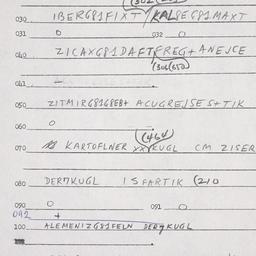 030 IBERG81FIXT/KALSEG81MAXT
031 0 032 0
040 ZICAXG81DAFTFREG+ANEJCE
041 -
050 ZITMIRG81G8EB+ ACUGREJSES+TIK
060 0
(464)
070 KARTOFLNER XXKUGL CM ZISER
080 DER7KUGL ISFARTIK (210
090 0 091 0
092 +
100 ALEMENIZG81FELN DER7KUGL